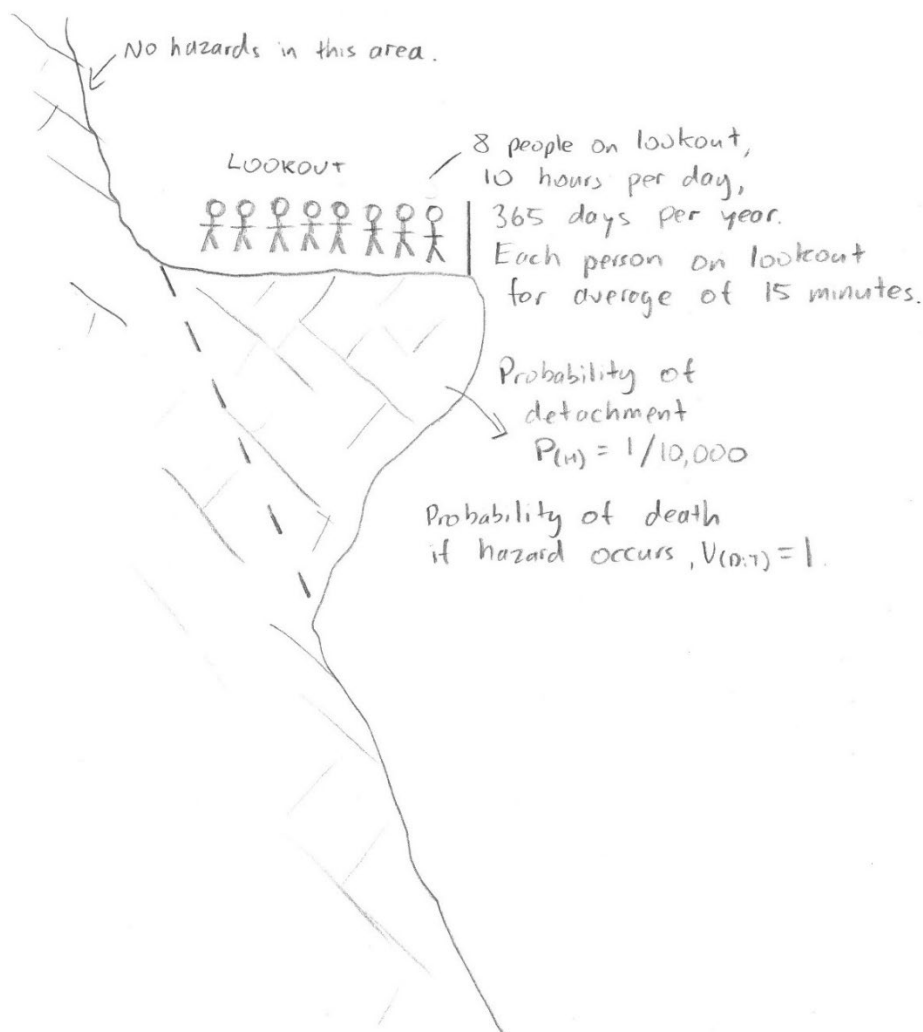 No hazards in this area.
LOOKOUT
8 people on lookout,
10 hours per day,
365 days per year.
Each person on lookout
for average of 15 minutes.
Probability of
detachment
P(H) = 1/10,000
Probability of death
if hazard occurs, V(D:T) = 1.